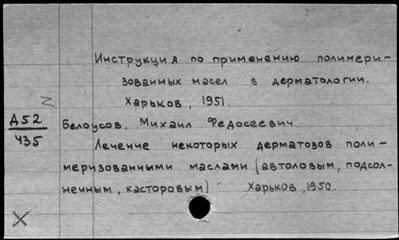 Инструкция по применению полимери-
зованных масел в дерматологии.
Харьков, 1951.
Д52
435
Белоусов, Михаил Федосеевич.
Лечение некоторых дерматозов поли-
меризованными маслами (автоловым, подсол-
нечным, касторовым) Харьков, 1950.